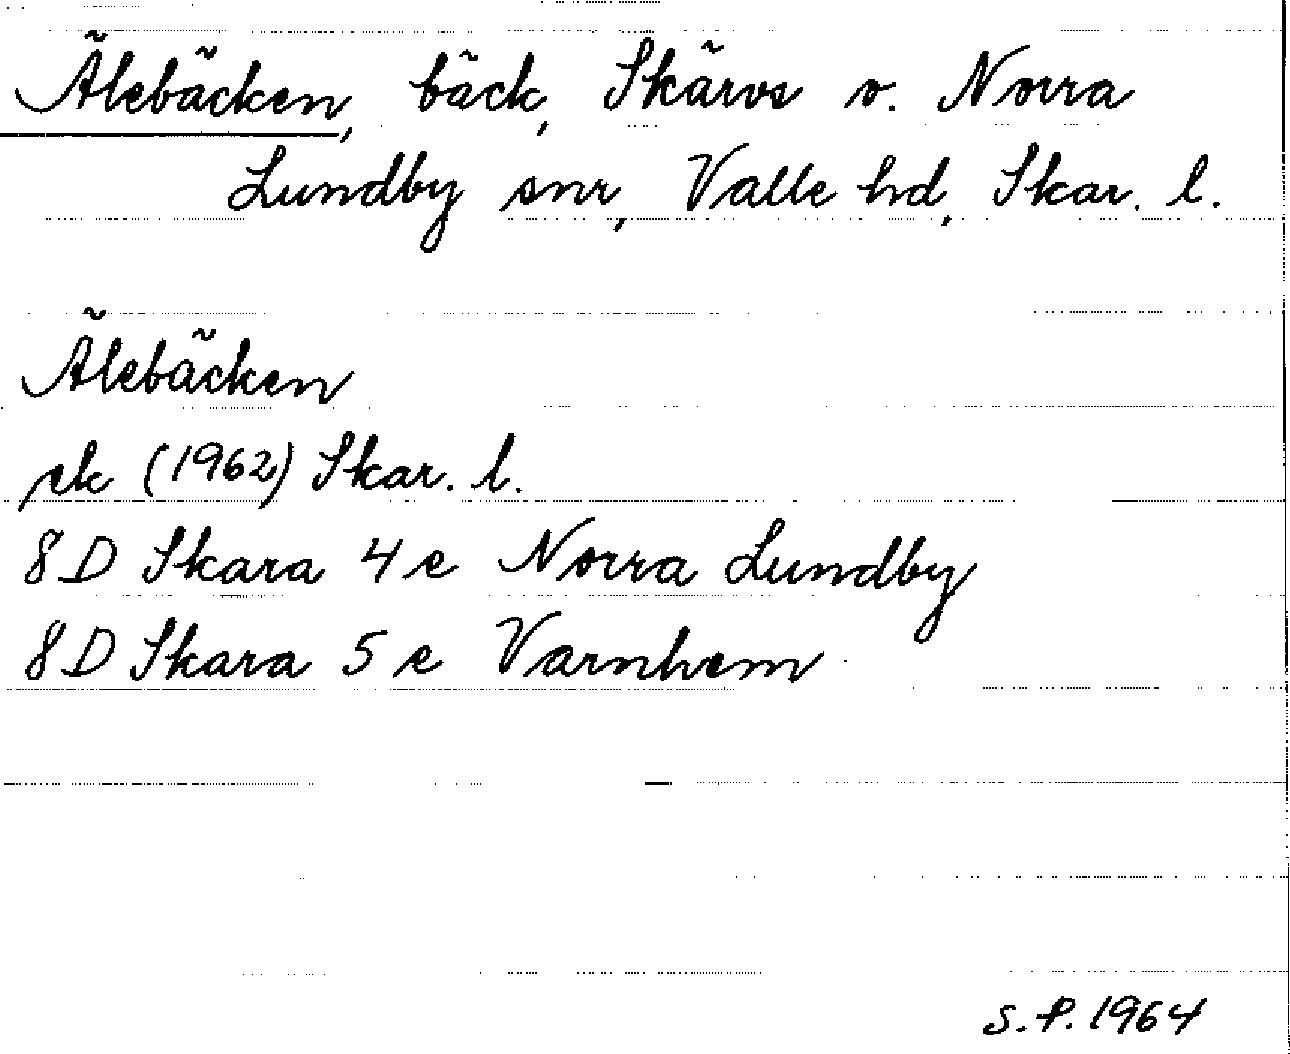 Älebäcken, bäck, Skärvs o. Norra
Lundby snr, Valle hd, Skar. l.
Älebäcken
ek (1962) Skar. l.
8 D Skara 4 e Norra Lundby
8 D Skara 5 e Varnhem
S.P. 1964